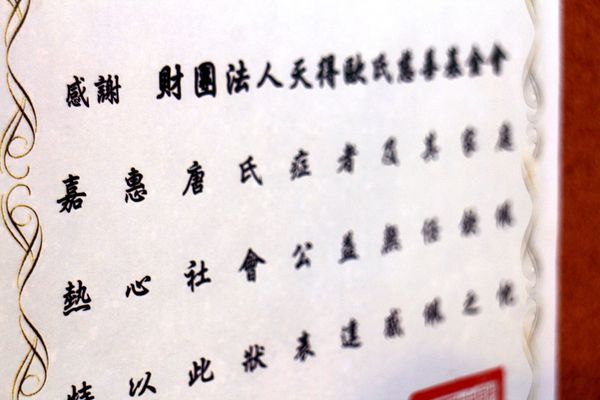 感謝 財團法人天得歐氏慈善基金會
嘉惠唐氏症者及其家庭
熱心社會公益無倍欽佩
特以此狀表達感佩之忱